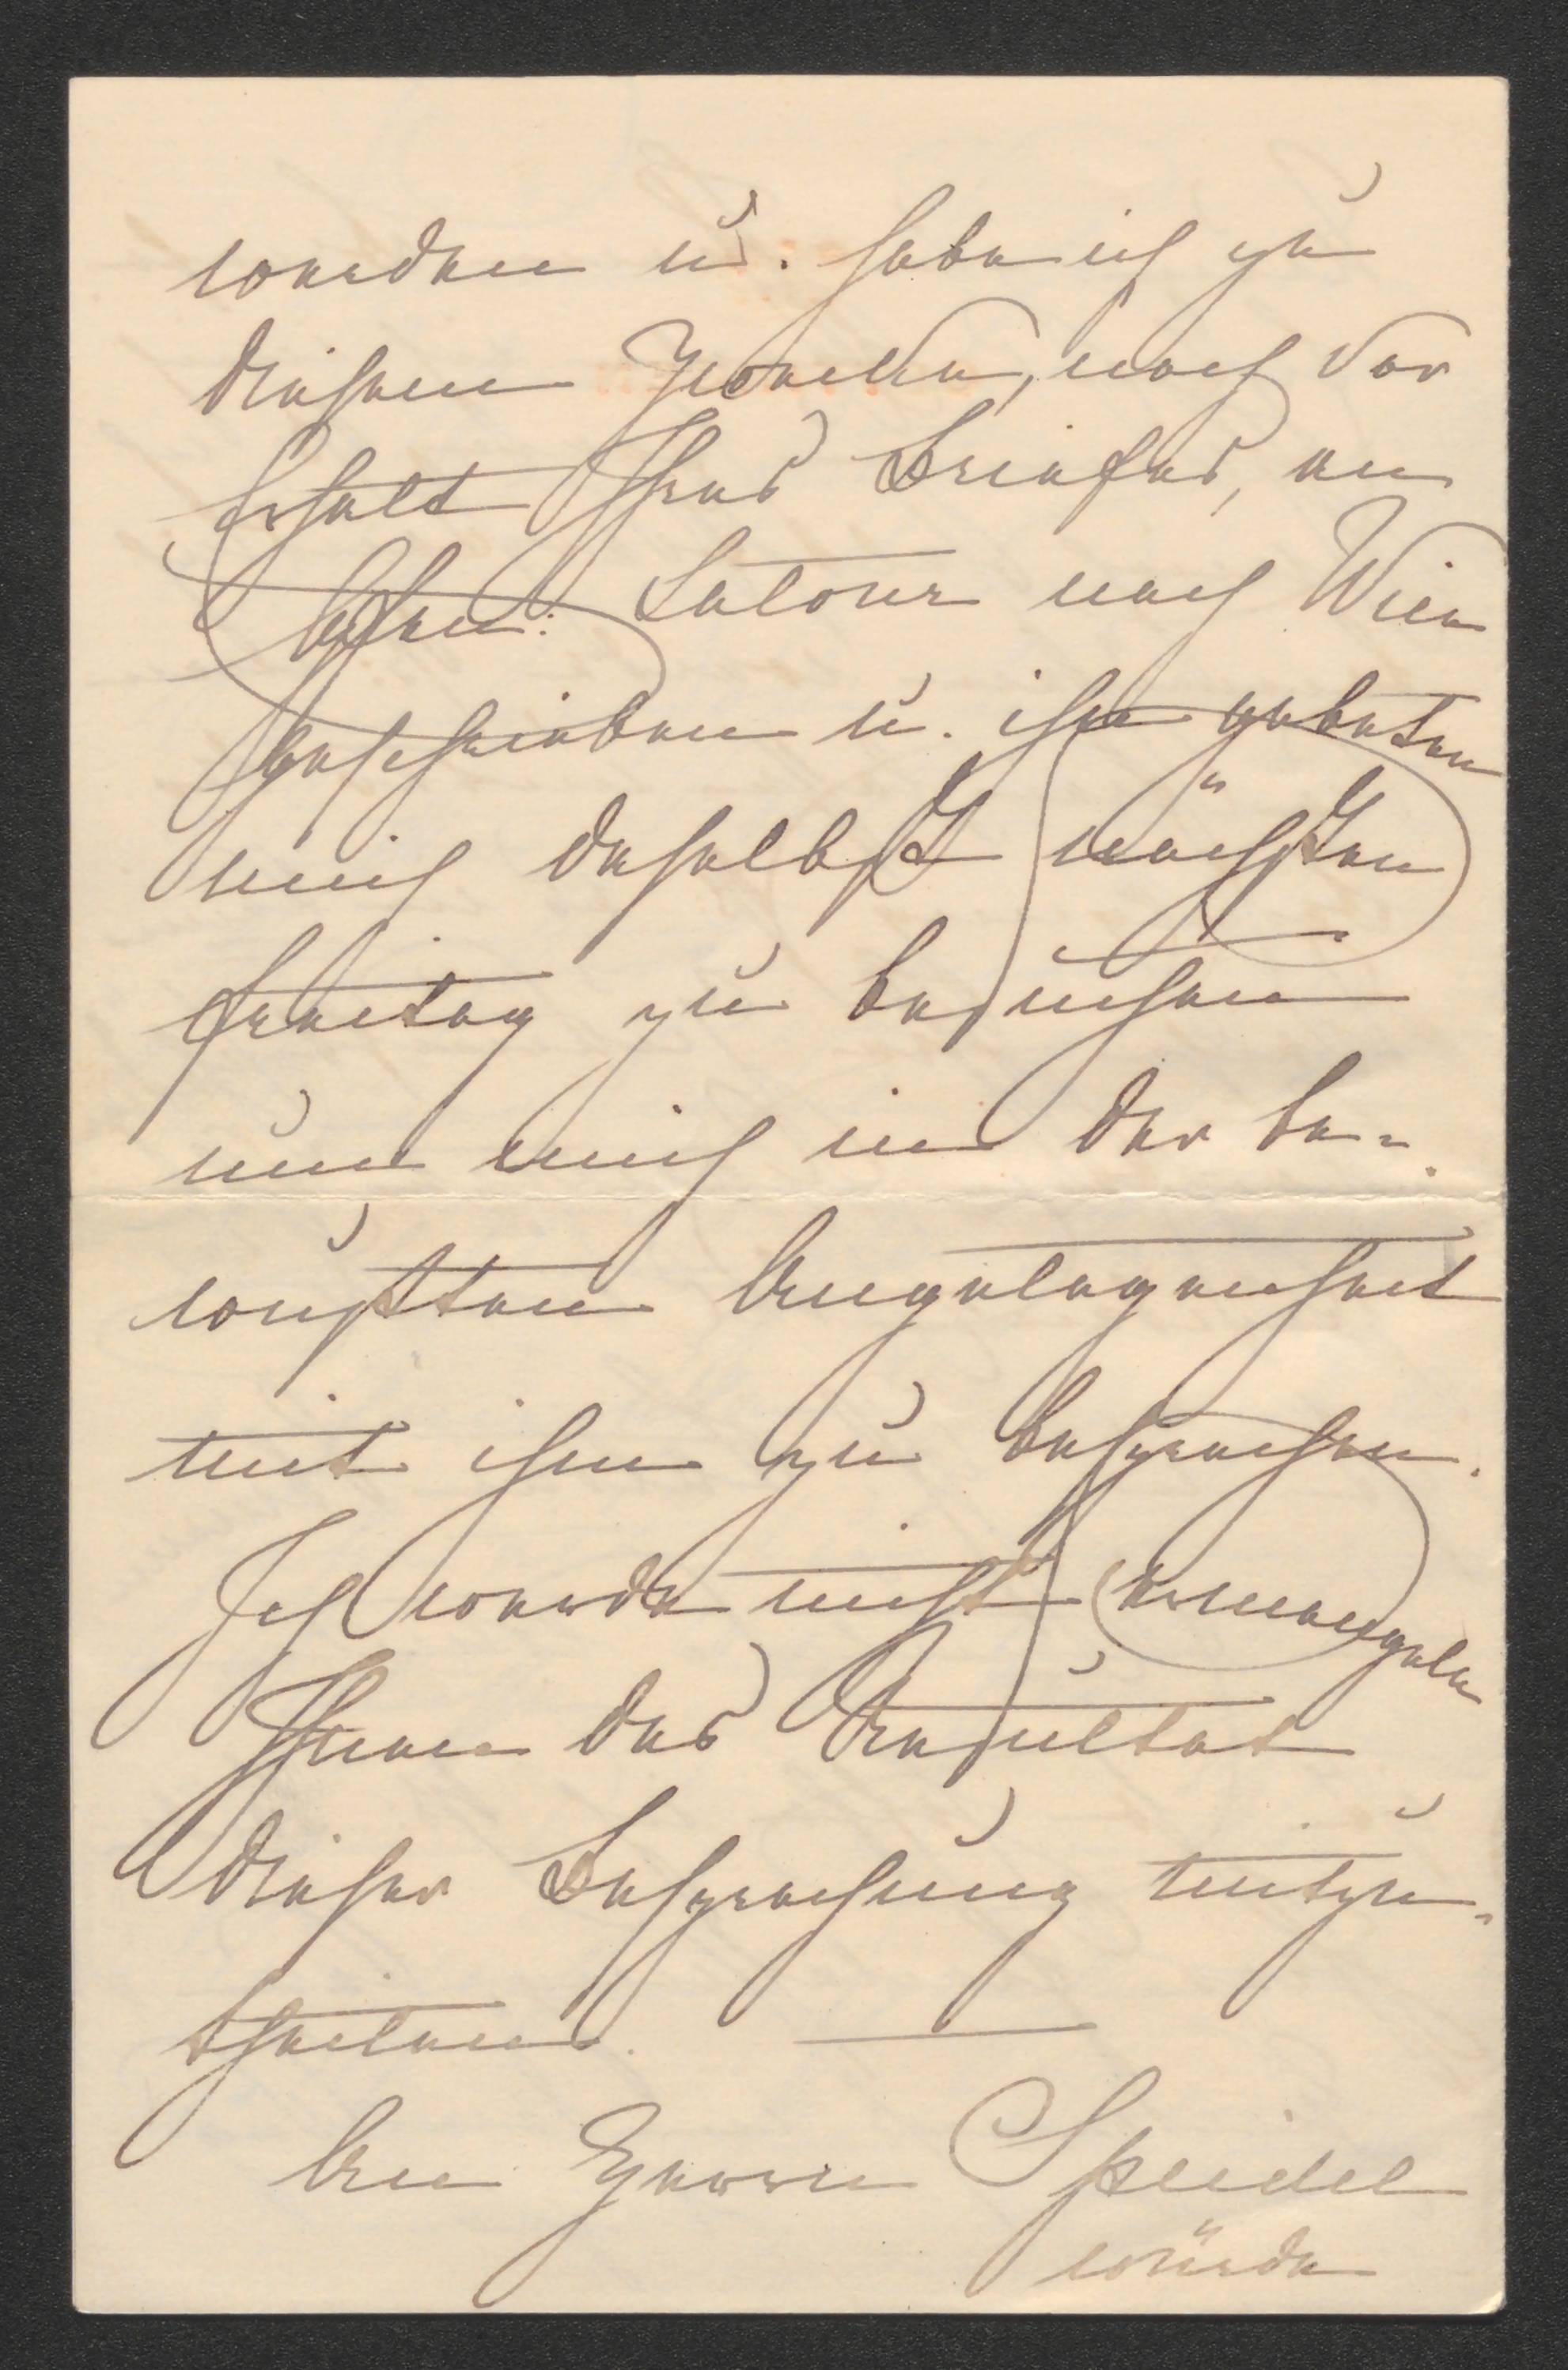 werden u. habe ich zu
diesem Zwecke, noch vor
Erhalt Ihres Briefes, an
Bfhn: Latour nach Wien
geschrieben u. ihn gebeten
mich daselbst nächsten
Freitag zu besuchen
um mich in der be-
wußten Angelegenheit
mit ihm zu besprechen.
Ich werde nicht ermangeln
Ihnen das Resultat
dieser Besprechung mitzu-
theilen. —
An Herrn Speidel
würde